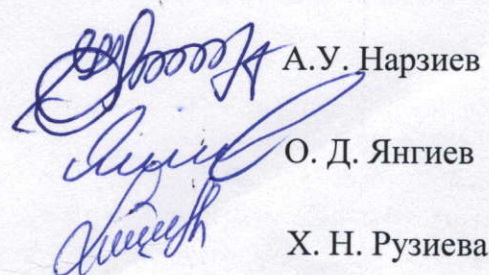 А.У. Нарзиев
О. Д. Янгиев
Х. Н. Рузиева